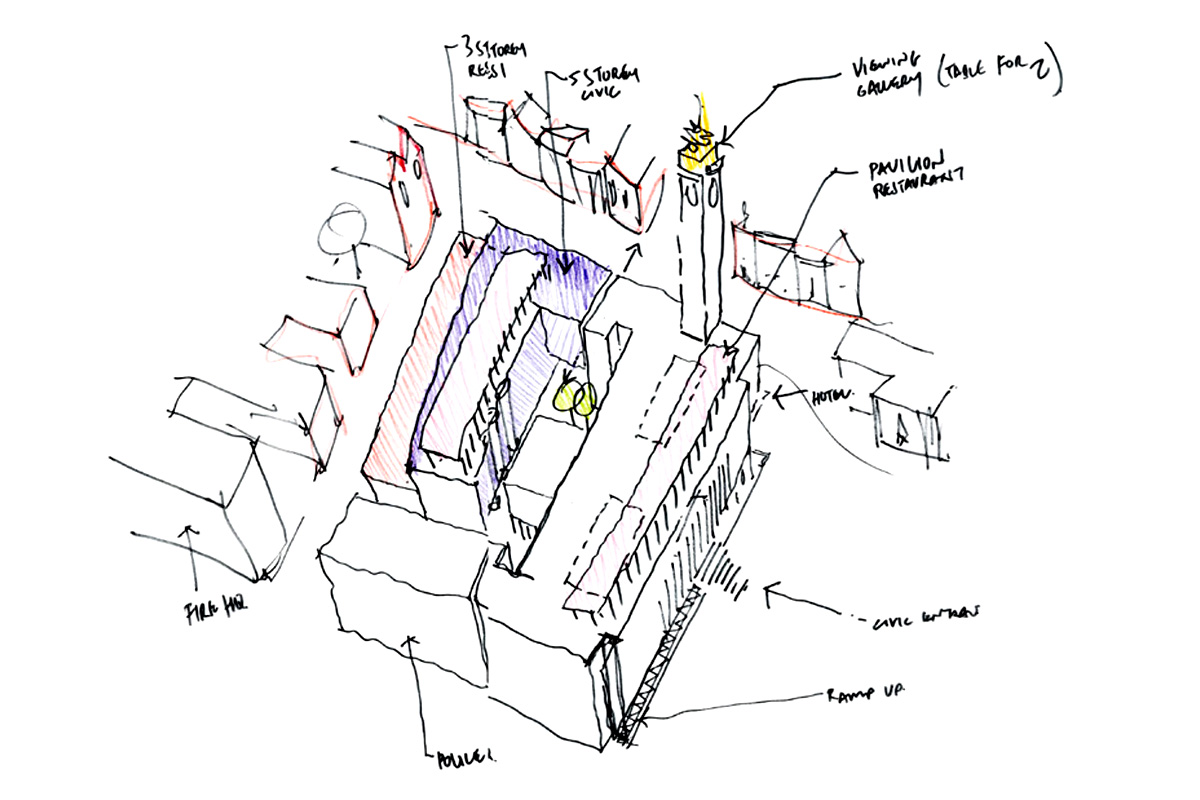 3 STOREY
RESI
5 STOREY
CIVIC
VIEWING
GALLERY (TABLE FOR 2)
PAVILION
RESTAURANT
HOTEL.
FIRE HQ
CIVIC
RAMP UP.
POLICE